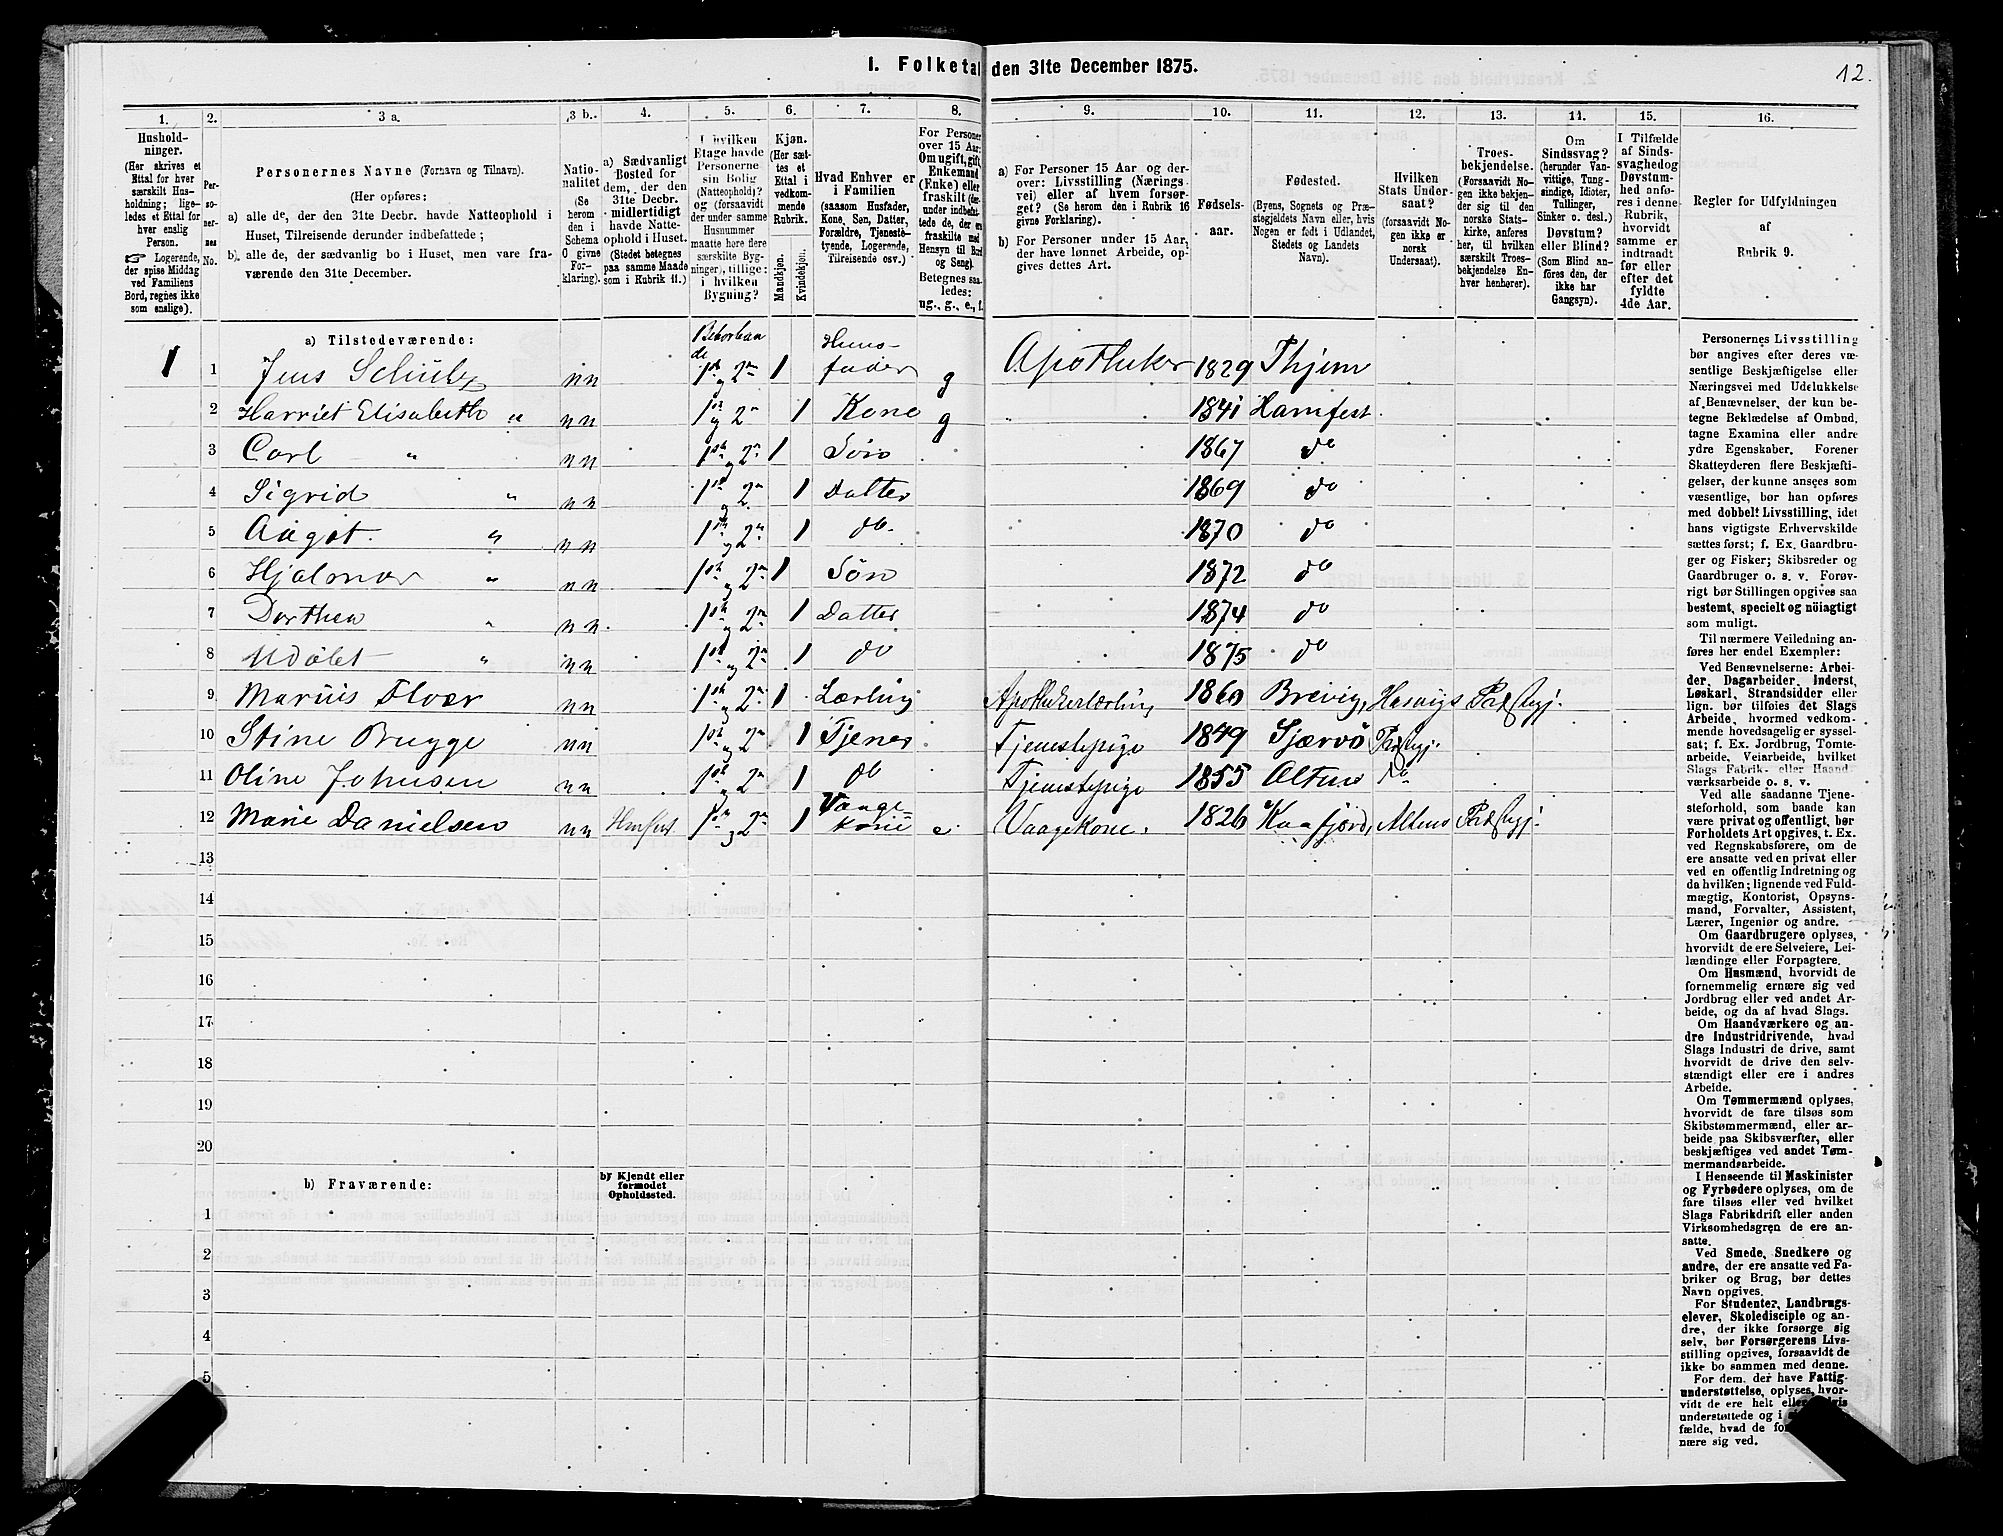 I. Folketal den 31te December 1875.
12.
1. 2. 3 a. 3 b. 4. 5. 6. 7. 8. 9. 10. 11. 12. 13. 14. 15. 16.
Hushold-
ninger.
(Her skrives et
Ettal for hver
særskilt Hus-
holdning; lige-
ledes et Ettal for
hver enslig
Person.
☞ Logerende,
der spise Middag
ved Familiens
Bord, regnes ikke
som enslige).
Per-
so-
ner-
nes
No.
Personernes Navne (Fornavn og Tilnavn).
(Her opføres:
a) alle de, der den 31te Decbr. havde Natteophold i
Huset, Tilreisende derunder indbefattede;
b) alle de, der sædvanlig bo i Huset, men vare fra-
værende den 31te December.
Natio-
nalitet
(Se
herom
den i
Schema
O givne
For-
klaring).
a) Sædvanligt
Bosted for
dem, der den
31te Decbr.
midlertidigt
havde Natte-
ophold i Huset.
(Stedet betegnes
paa samme Maade
som i Rubrik 11.)
I hvilken
Etage havde
Personerne
sin Bolig
(Natteophold)?
og (forsaavidt
der under samme
Husnummer
maatte høre flere
særskilte Byg-
ninger), tillige:
i hvilken
Bygning?
Kjøn.
(Her sæt-
tes et
Ettal i
vedkom-
mende
Rubrik.
Mandkjøn.
Kvindekjøn.
Hvad Enhver er
i Familien
(saasom Husfader,
Kone, Søn, Datter,
Forældre, Tjeneste-
tyende, Logerende,
Tilreisende osv.)
For Personer
over 15 Aar:
Om ugift, gift,
Enkemand
(Enke) eller
fraskilt (der-
under indbefat-
tede de, der ere
fraskilte med
Hensyn til Bord
og Seng).
Betegnes saa-
ledes:
ug., g., e., f.
a) For Personer 15 Aar og der-
over: Livsstilling (Nærings-
vei) eller af hvem forsør-
get? (Se herom den i Rubrik 16
givne Forklaring).
b) For Personer under 15 Aar,
der have lønnet Arbeide, op-
gives dettes Art.
Fødsels-
aar.
Fødested.
(Byens, Sognets og Præ-
stegjeldets Navn eller, hvis
Nogen er født i Udlandet,
Stedets og Landets
Navn).
Hvilken
Stats Under-
saat?
(forsaavidt No-
gen ikke er
norsk
Undersaat).
Troes-
bekjendelse.
(Forsaavidt No-
gen ikke bekjen-
der sig til den
norske Stats-
kirke, anføres
her, til hvilken
særskilt Troes-
bekjendelse En-
hver henhører).
Om
Sindssvag?
(herunder Van-
vittige, Tung-
sindige, Idioter,
Tullinger,
Sinker o. desl.)
Døvstum?
eller Blind?
(Som Blind an-
føres den, der
ikke har
Gangsyn).
I Tilfælde
af Sinds-
svaghed og
Døvstum-
hed anfø-
res i denne
Rubrik,
hvorvidt
samme er
indtraadt
før eller
efter det
fyldte
4de Aar.
Regler for Udfyldningen
af
Rubrik 9.
a) Tilstedeværende:
1 1 Jens nn 1ste og 2den 1 Huusfader g Apotheker 1829 Thjem
2 Harriet Elisabeth " nn 1ste og 2den 1 Kone g " 1841 Hamfest
3 Carl " nn 1ste og 2den 1 Søn 1867 do
4 Sigrid " nn 1ste og 2den 1 Datter 1869 do
5 Aagot " nn 1ste og 2den 1 do. 1870 do
6 Hjalmar " nn 1ste og 2den 1 Søn 1872 do
7 Dorthea " nn 1ste og 2den 1 Datter 1874 do
8 " nn 1ste og 2den 1 do 1875 do
9 Marius nn 1ste og 2den 1 Lærling Apothekerlærling 1860 Brevig, Hasvigs Præstegj.
10 Stine Brygge nn 1ste og 2den 1 Tjener Tjenestepige 1849 Sjærvø Præstegj.
11 Oline Johnsen nn 1ste og 2den 1 do Tjenestepige 1855 Altens do
12 Marie Danielsen nn 1ste og 2den 1 Vaage kone e. Vaagekone. 1826 Kaafjord, Altens Præstegj.
13
14
15
16
17
18
19
20
b) Fraværende:
b) Kjendt eller
formodet
Opholdssted.
1
2
3
4
5
Personernes Livsstilling
bør angives efter deres væ-
sentlige Beskjæftigelse eller
Næringsvei med Udelukkelse
af Benævnelser, der kun be-
tegne Beklædelse af Ombud,
tagne Examina eller andre
ydre Egenskaber. Forener
Skatteyderen flere Beskjæfti-
gelser, der kunne ansees som
væsentlige, bør han opføres
med dobbelt Livsstilling, idet
hans vigtigste Erhvervskilde
sættes først; f. Ex. Gaardbru-
ger og Fisker; Skibsreder og
Gaardbruger o. s. v. Forøv-
rigt bør Stillingen opgives saa
bestemt, specielt og nöiagtigt
som muligt.
Til nærmere Veiledning an-
føres her endel Exempler:
Ved Benævnelserne: Arbei-
der, Dagarbeider, Inderst,
Løskarl, Strandsidder eller
lign. bør tilføies det Slags
Arbeide, hvormed vedkom-
mende hovedsagelig er syssel-
sat; f. Ex. Jordbrug, Tomte-
arbeide, Veiarbeide, hvilket
Slags Fabrik- eller Haand-
værksarbeide o. s. v.
Ved alle saadanne Tjene-
steforhold, som baade kan
være privat og offentligt, bør
Forholdets Art opgives, t. Ex.
ved Regnskabsførere, om de
ere ansatte ved en privat eller
ved en offentlig Indretning og
da hvilken; lignende ved Fuld-
mægtig, Kontorist, Opsyns-
mand, Forvalter, Assistent,
Lærer, Ingeniør og andre.
Om Gaardbrugere oplyses,
hvorvidt de ere Selveiere, Lei-
lændinge eller Forpagtere.
Om Husmænd, hvorvidt de
fornemmelig ernære sig ved
Jordbrug eller ved andet Ar-
beide, og da af hvad Slags.
Om Haandværkere og an-
dre Industridrivende, hvad
Slags Industri de drive, samt
hvorvidt de drive den selv-
stændigt eller ere i andres
Arbeide.
Om Tømmermænd oplyses,
hvorvidt de fare tilsøs som
Skibstømmermænd, eller ar-
beide paa Skibsværfter, eller
beskjæftiges ved andet Tøm-
mermandsarbeide.
I Henseende til Maskinister
og Fyrbødere oplyses, om de
fare tilsøs eller ved hvilket
Slags Fabrikdrift eller anden
Virksomhedsgren de ere an-
satte.
Ved Smede, Snedkere og
andre, der ere ansatte ved Fa-
briker og Brug, bør dettes
Navn opgives.
For Studenter, Landbrugs-
elever, Skoledisciple og an-
dre, der ikke forsørge sig
selv, bør Forsørgerens Livs-
stilling opgives, forsaavidt de
ikke bo sammen med denne.
For dem, der have Fattig-
understøttelse, oplyses, hvor-
vidt de ere helt eller
understøttede og i
fælde, hvad de
nære sig ved.